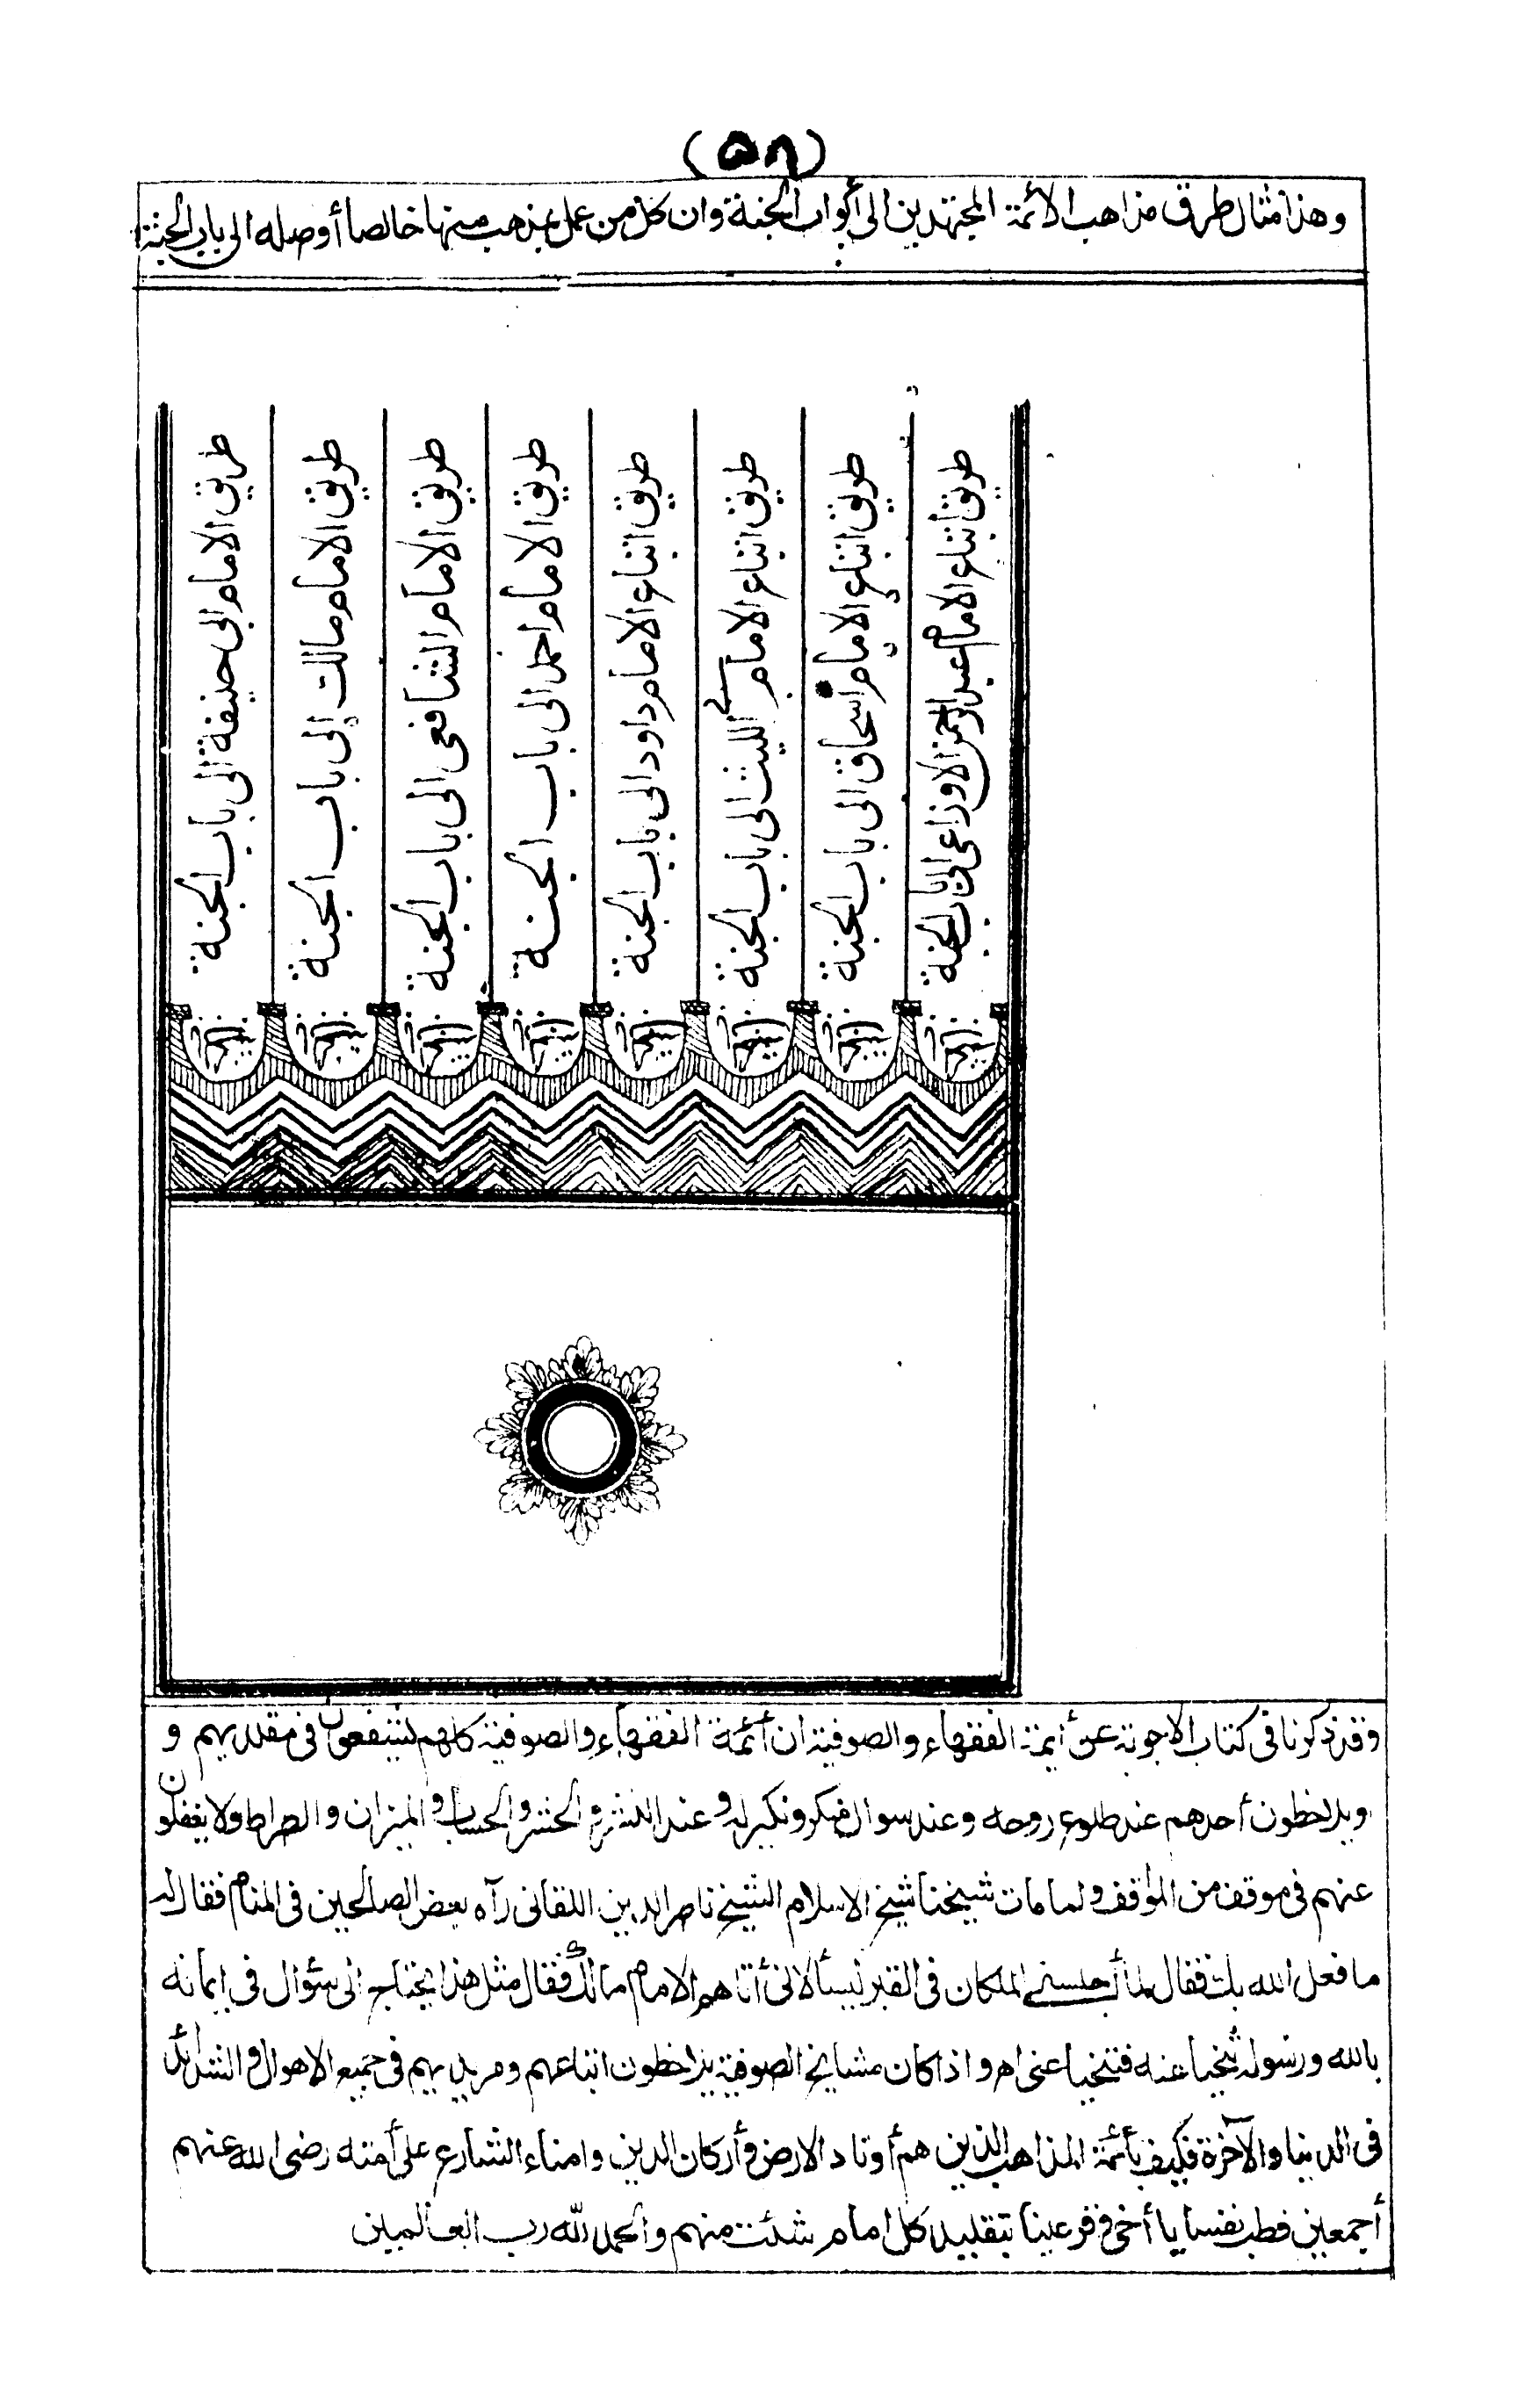 (٥٨)
وهذا مثال طرق مذاهب الأئمة المجتهدين الى أبواب الجنة وان كل من عمل بمذهب منها خالصا أوصله الى باب الجنة
طريق الامام ابى حنيفة الى باب الجنة
طريق الامام مالك إلى باب الجنة
طريق الامام الشافعى الى باب الجنة
طريق الامام احمد الى باب الجنة
طريق اتباع الامام داود الى باب الجنة
طريق اتباع الامام الليث الى باب الجنة
طريق اتباع الإمام اسحاق الى باب الجنة
طريق أتباع الامام عبد الرحمن الاوزاعى الى باب الجنة
وقد ذكرنا فى كتاب الاجوبة عن أيمة الفقهاء والصوفية ان أئمة الفقهاء والصوفية كلهم يشفعون فى مقلديهم و
ويلاحظون أحدهم عند طلوع روحه وعند سوال منكر ونكير له وعند النشر والحشر والحساب والميزان والصراط ولا يغفلون
عنهم فى موقف من المواقف ولما مات شيخنا شيخ الاسلام الشيخ ناصر الدين اللقانى رآه بعض الصالحين فى المنام فقال له
ما فعل الله بك فقال لما أجلسنى الملكان فى القبر ليسألانى أتاهم الامام مالك فقال مثل هذا يحتاج الى سؤال فى إيمانه
بالله ورسوله تنحيا عنه فتنحيا عنى اه واذا كان مشايخ الصوفية يلاحظون اتباعهم ومريديهم فى جميع الاهوال والشدائد
فى الدنيا والآخرة فكيف بأئمة المذاهب الذين هم أوتاد الارض وأركان الدين وامناء الشارع على أمته رضى الله عنهم
أجمعين فطب نفسا يا أخى وقر عينا بتقليد كل امام شئت منهم والحمد لله رب العالمين